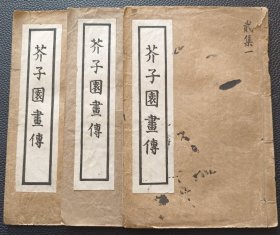 芥子園畫傳
芥子園畫傳
芥子園畫傳
貳集一